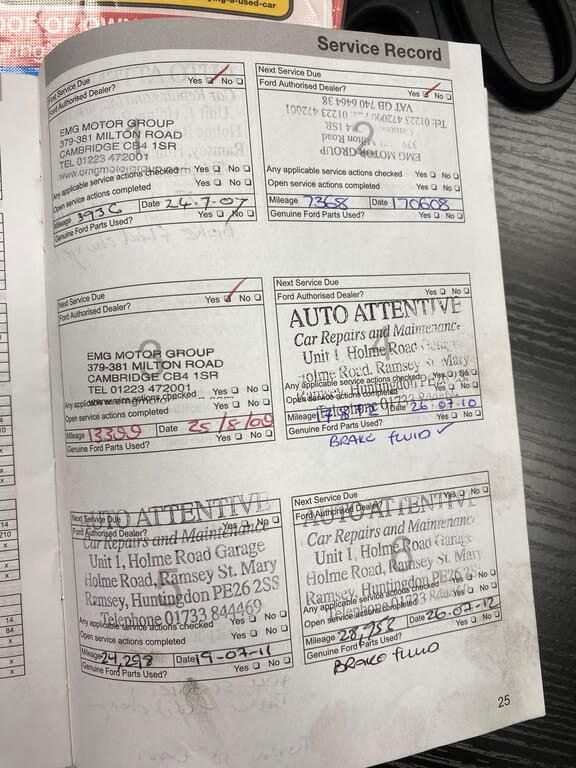 -a-used-car
OOF OF OWN
Service Record
Next Service Due
Ford Authorised Dealer? Yes No
1
EMG MOTOR GROUP
379-381 MILTON ROAD
CAMBRIDGE CB4 1SR
TEL 01223 472001
Any applicable service actions checked Yes No
Open service actions completed Yes No
Mileage 3936 Date 24.7.07
Genuine Ford Parts Used? Yes No
Next Service Due
Ford Authorised Dealer? Yes No
2
EMG MOTOR GROUP
379
Milton Road
4 1SR
VAT GB 740 6464 38
Any applicable service actions checked Yes No
Open service actions completed Yes No
Mileage 7368 Date 170608
Genuine Ford Parts Used? Yes No
Next Service Due
Ford Authorised Dealer? Yes No
3
EMG MOTOR GROUP
379-381 MILTON ROAD
CAMBRIDGE CB4 1SR
TEL 01223 472001
Any applicable service actions checked Yes No
Open service actions completed Yes No
Mileage 13399 Date 25/8/09
Genuine Ford Parts Used? Yes No
Next Service Due
Ford Authorised Dealer? Yes No
4
AUTO ATTENTIVE
Car Repairs and Maintenance
Unit 1 Holme Road Garage
Holme Road, Ramsey St. Mary
Any applicable service actions checked
Open service actions completed
Mileage Date 26.07.10
Genuine Ford Parts Used? Yes No
BRAKE FLUID ✓
Next Service Due
Ford Authorised Dealer? Yes No
5
AUTO ATTENTIVE
Car Repairs and Maintenance
Unit 1, Holme Road Garage
Holme Road, Ramsey St. Mary
Ramsey, Huntingdon PE26 2SS
Telephone 01733 844469
Any applicable service actions checked Yes No
Open service actions completed Yes No
Mileage 24,298 Date 19-07-11
Genuine Ford Parts Used? Yes No
Next Service Due
Ford Authorised Dealer? Yes No
6
AUTO ATTENTIVE
Car Repairs and Maintenance
Unit 1, Holme Road Garage
Holme Road, Ramsey St. Mary
Ramsey, Huntingdon PE26 2SS
Telephone 01733
Any applicable service actions checked Yes No
Open service actions completed Yes No
Mileage 28,952 Date 26-07-12
Genuine Ford Parts Used? Yes No
BRAKE FLUID
25